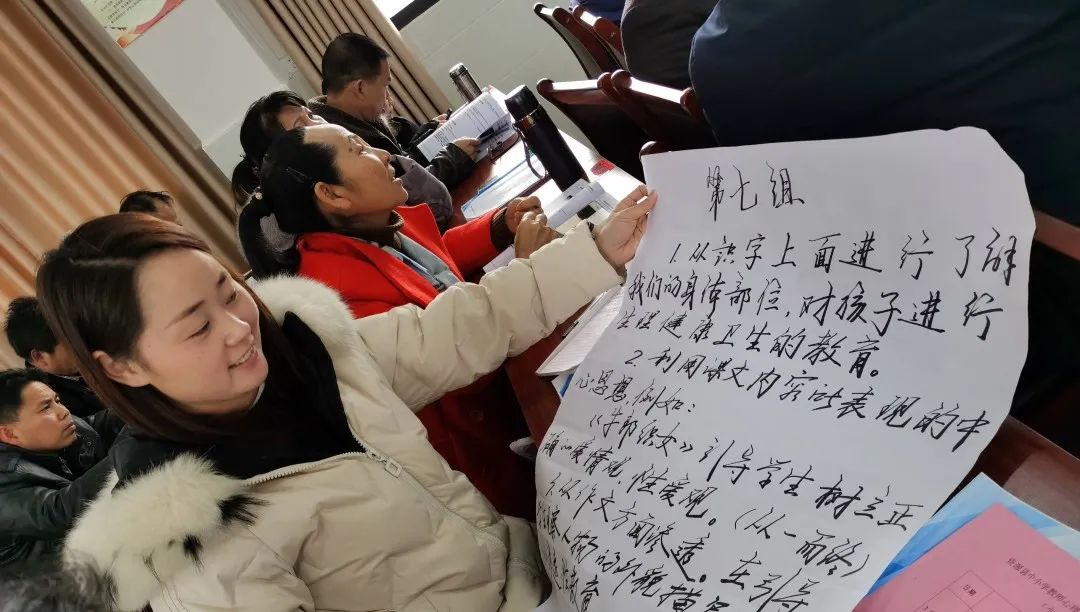 第七组
1.从识字上面进行了解
我们的身体部位,对孩子进行
生理健康卫生的教育。
2.利用课文内容所表现的中
心思想,例如:
《牛郎织女》引导学生树立正
确的爱情观,性爱观。(从一而终)
3.从作文方面渗透。在引导
人物的外貌描写
教育
资源县中小学教师心
日期